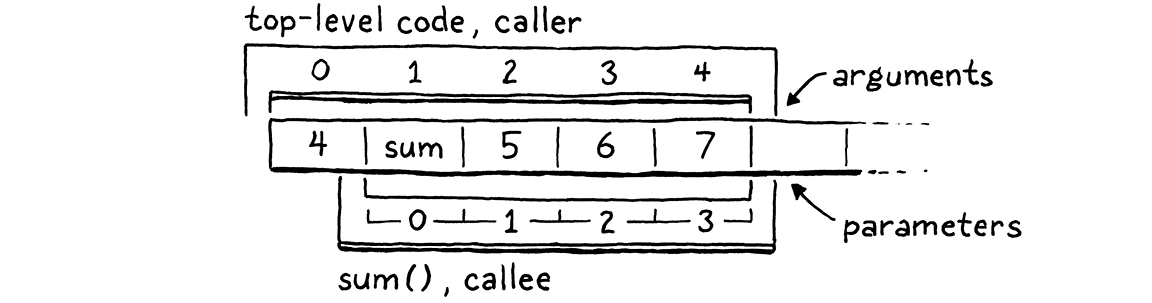 top-level code, caller
0 1 2 3 4
arguments
4 sum 5 6 7
0 1 2 3
parameters
sum(), callee